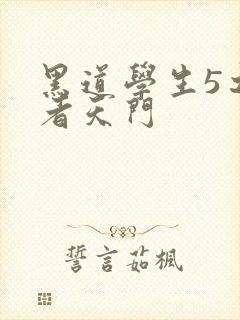 黑道學生5
者天門
誓言茹楓